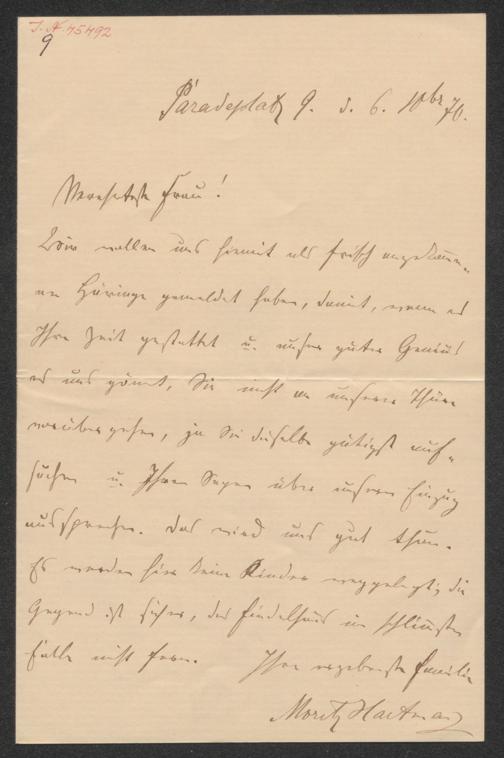 I. N. 45492
9
Paradeplatz 9. d. 6. 10br 70.
Verehrteste Frau!
Wir wollen uns hiemit als frisch angekomme-
ne Häringe gemeldet haben, damit, wenn es
Ihre Zeit gestattet u. unser guter Genius
es uns gönnt, Sie nicht an unserer Thüre
vorübergehen, ja Sie dieselbe gütigst auf-
suchen u. Ihren Segen über unsern Einzug
aussprechen. Das wird uns gut thun.
Es werden hier keine Kinder weggelegt; die
Gegend ist sicher, das Findelhaus im schlimmsten
Falle nicht fern. Ihre ergebenste Familie
Moritz Hartmann